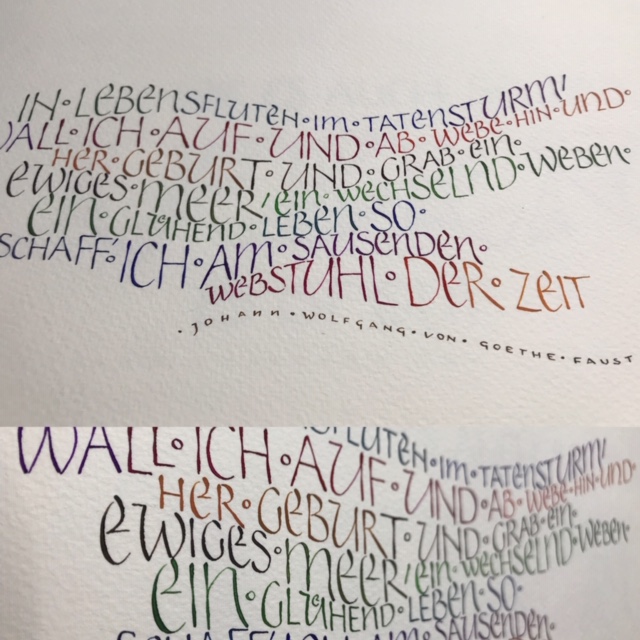 IN·LEBENSFLUTEN·IM·TATENSTURM!
WALL·ICH·AUF·UND·AB·WEBE·HIN·UND·
HER·GEBURT·UND·GRAB·EIN·
EWIGES·MEER/EIN·WECHSELND·WEBEN·
EIN·GLÜHEND·LEBEN·SO·
SCHAFF'·ICH·AM·SAUSENDEN·
WEBSTUHL·DER·ZEIT
·JOHANN·WOLFGANG·VON·GOETHE·FAUST
FLUTEN·IM·TATENSTURM!
WALL·ICH·AUF·UND·AB·WEBE·HIN·UND·
HER·GEBURT·UND·GRAB·EIN·
EWIGES·MEER/EIN·WECHSELND·WEBEN·
EIN·GLÜHEND·LEBEN·SO·
SCHAFF'·ICH·AM·SAUSENDEN·